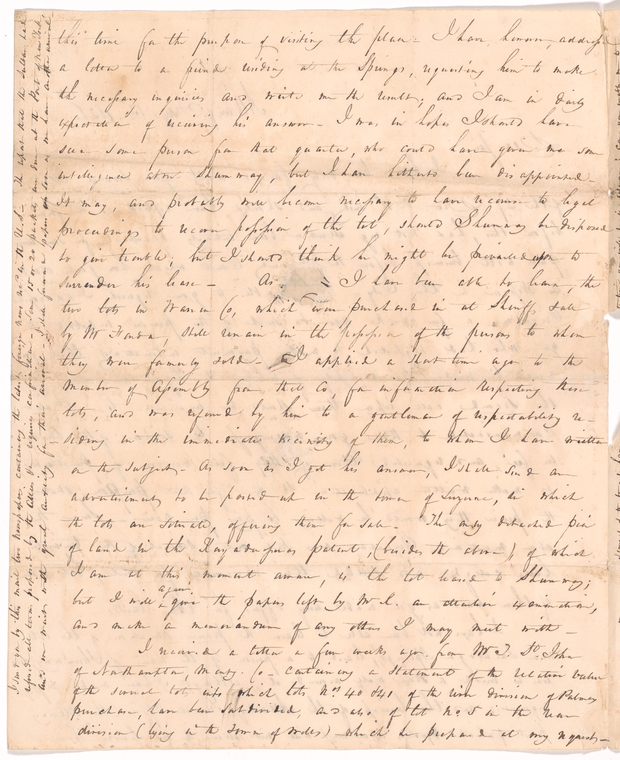 this time for the purpose of visiting the place - I have, however, address
a letter to a friend residing at the Springs, requesting him to make
the necessary inquiries and write me the result, and I am in daily
expectation of receiving his answer - I was in hopes I should have
seen some person from that quarter, who could have given me some
intelligence about Shumway, but I have hitherto been disappointed -
It may, and probably will become necessary to have recourse to legal
proceedings to recover possession of the lot, should Shumway be disposed
to give trouble; but I should think he might be prevailed upon to
surrender his lease - As I have been able to learn, the
two lots in Warren Co, which were purchased in at Sheriffs sale
by Mr Fonda, still remain in the possession of the persons to whom
they were formerly sold - I applied a short time ago to the
Member of Assembly from that Co, for information respecting these
lots, and was referred by him to a gentleman of respectability re-
siding in the immediate vicinity of them, to whom I have written
on the subject - As soon as I get his answer, I shall send an
advertisement to be posted up in the town of Luzerne, in which
the lots are situate, offering them for sale - The only detached piece
of land in the Kayaderosseras patent, (besides the above), of which
I am at this moment aware, is the lot leased to Shumway;
but I will again give the papers left by Mr L. an attentive examination,
and make a memorandum of any others I may meet with -
I received a letter a few weeks ago from Mr T. St. John
of Northampton, Montg. Co - containing a statement of the relative value
of the several lots, into which lots Nos 40 & 41 of the river division of Palmers
purchase, have been subdivided, and also of lot No 5 in the rear
division (lying in the town of Wells) which he prepared at my request -
I send you by this mail two newspapers, containing the latest foreign news